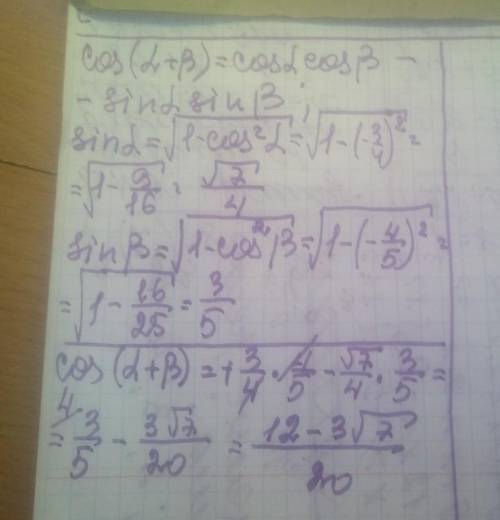 cos(α+β)=cosα cosβ −
− sinα sinβ
sinα=√(1-cos²α)=√(1-(-3/4)²)=
=√(1-9/16)=√7/4
sinβ=√(1-cos²β)=√(1-(-4/5)²)=
=√(1-16/25)=3/5
cos(α+β)=+3/4·4/5-√7/4·3/5=
=3/5-3√7/20=(12-3√7)/20